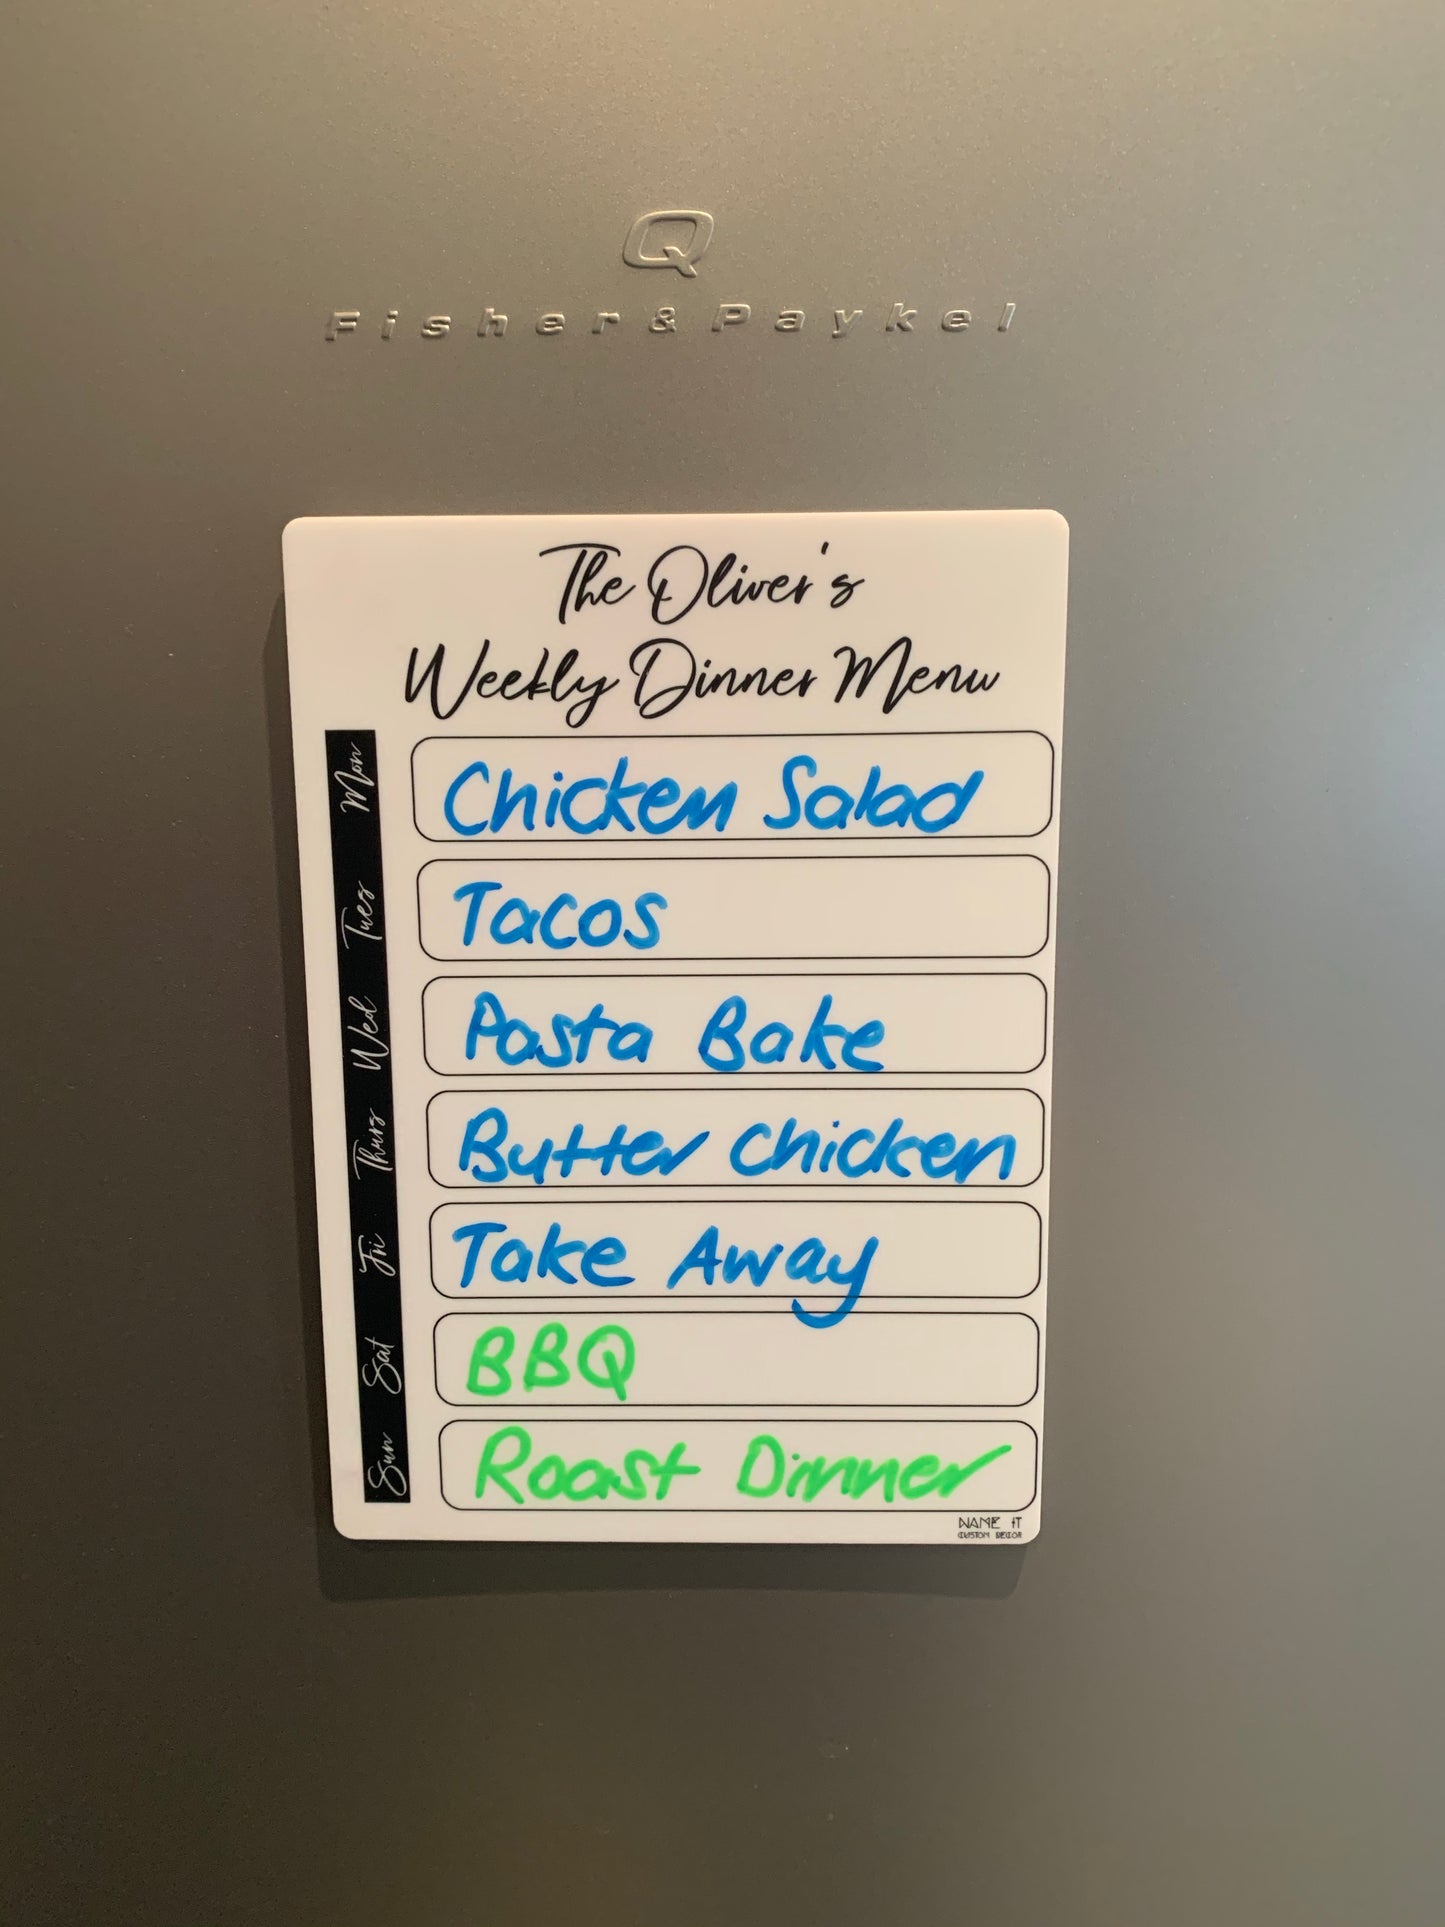 Q
Fisher&Paykel
The Oliver's
Weekly Dinner Menu
Mon Chicken Salad
Tues Tacos
Wed Pasta Bake
Thurs Butter Chicken
Fri Take Away
Sat BBQ
Sun Roast Dinner
NAME IT
CUSTOM DECOR